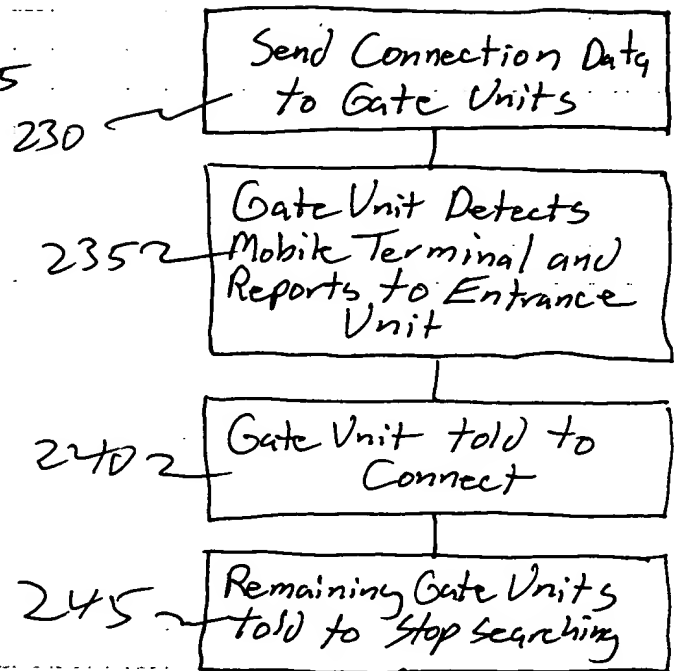 Send Connection Data
to Gate Units
5
230
Gate Unit Detects
Mobile Terminal and
Reports to Entrance
Unit
235
Gate Unit told to
Connect
240
Remaining Gate Units
told to stop searching
245